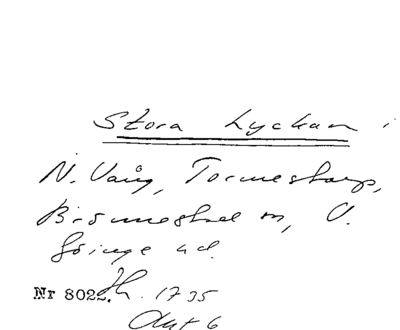 Stora Lyckan i
N. Vång, Tormestorp,
Brönnestad sn, V.
Göinge hd.
Nr 8022. Jh. 1735
Akt 6